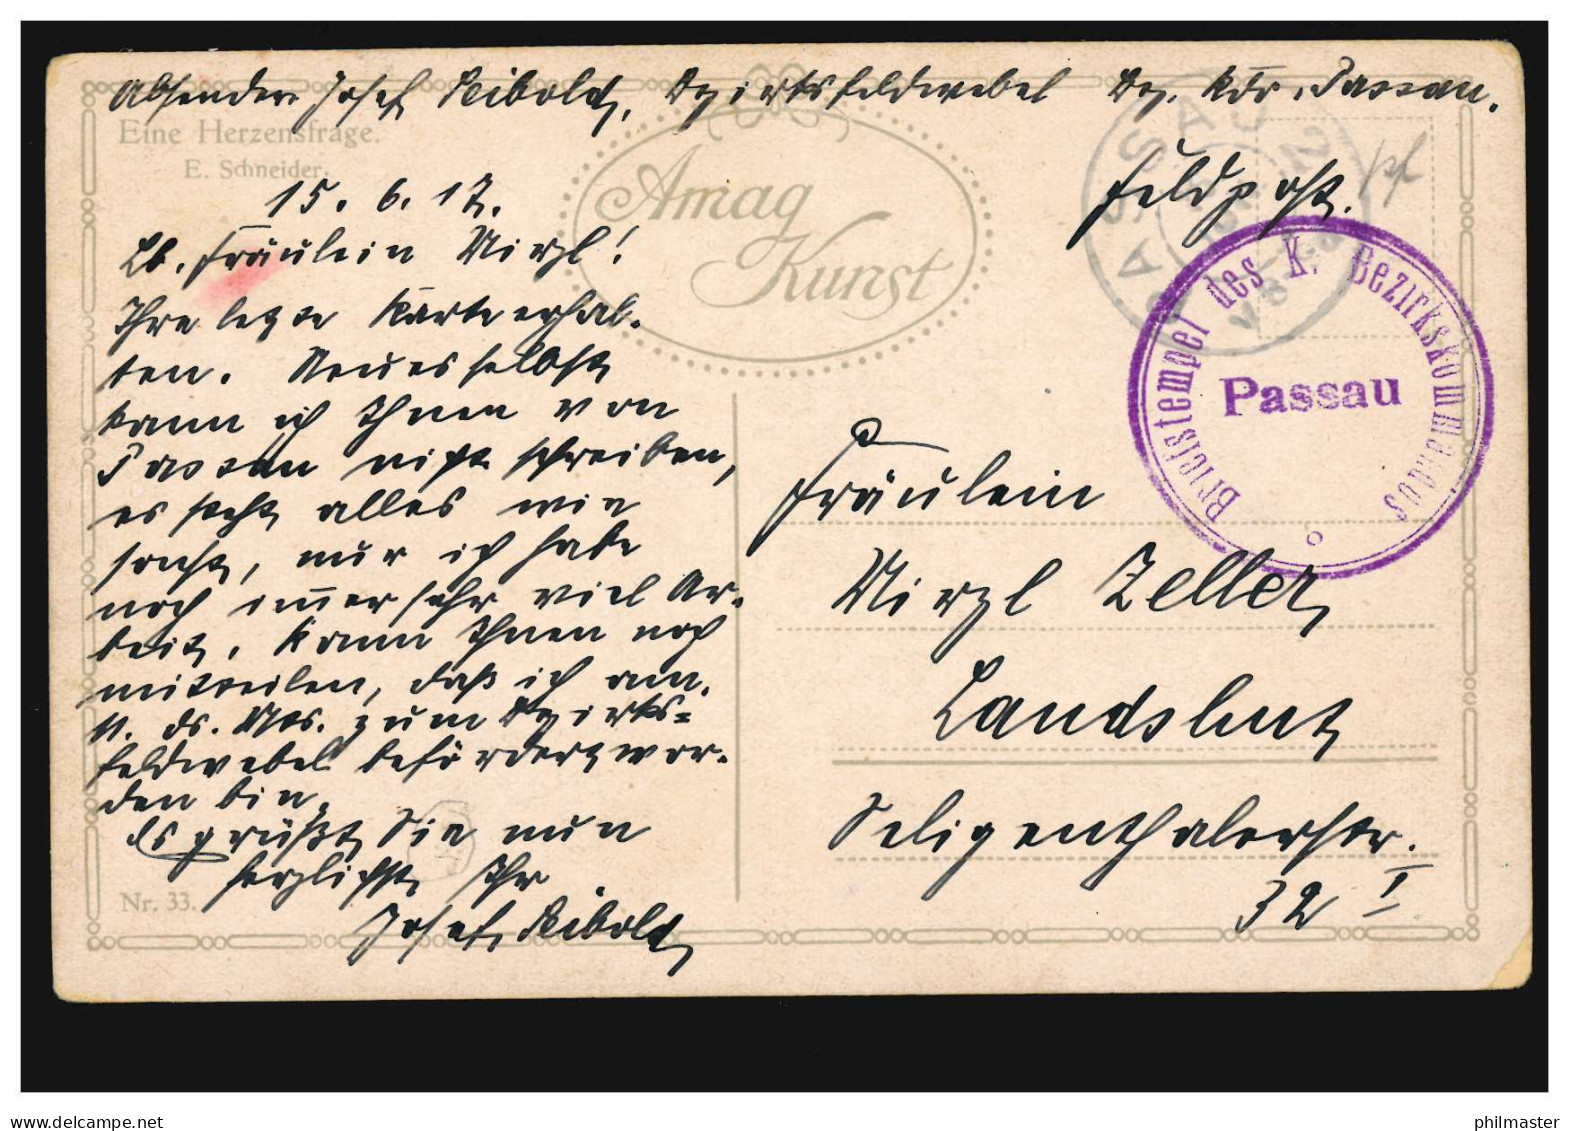 Absender Josef Neibold, Bezirksfeldwebel Bez. Kdo. Passau.
Eine Herzensfrage.
E. Schneider.
Amag
Kunst
15. 6. 17.
Lb. Fräulein Mirzl!
Ihre letzte Karte erhal-
ten. Neues selbst
kann ich Ihnen von
Passau nicht schreiben,
es steht alles wie
sonst, nur ich habe
noch immer sehr viel Ar-
beit. Kann Ihnen noch
mitteilen, daß ich am
11. ds. Mts. zum Bezirks-
feldwebel befördert wor-
den bin.
Es grüßt Sie nun
herzlichst Ihr
Josef Neibold
Nr. 33.
Feldpost.
PASSAU 2
Briefstempel des K. Bezirkskommandos
Passau
Fräulein
Mirzl Zeller
Landshut
Seligenthalerstr.
32 I
delcampe.net
philmaster